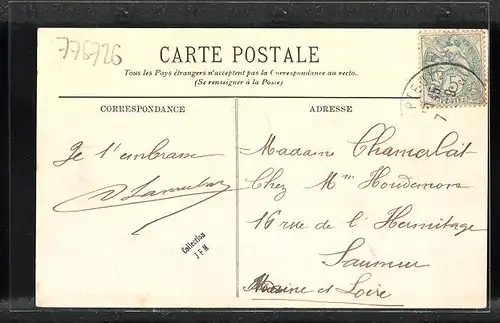 775726
CARTE POSTALE
Tous les Pays étrangers n'acceptent pas la Correspondance au recto.
(Se renseigner à la Poste)
CORRESPONDANCE
ADRESSE
Je t'embrasse
Madame
Chez Mme
16 rue de l'Hermitage
Saumur
Maine et Loire
Collection
JFM
5c